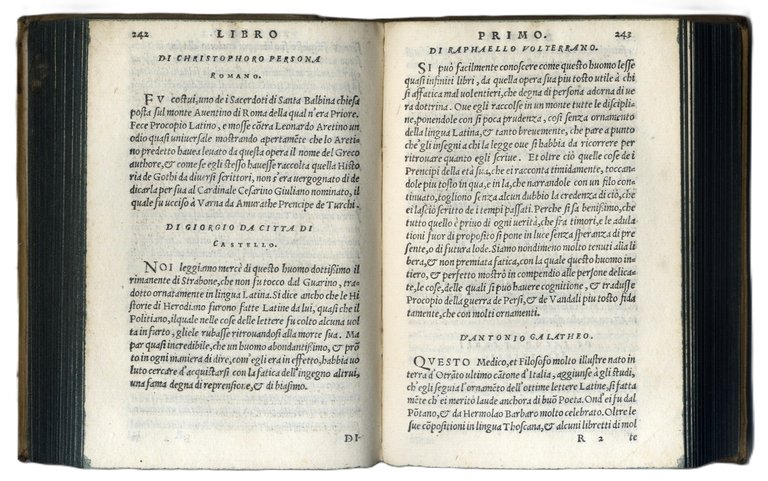 242 LIBRO
DI CHRISTOPHORO PERSONA
ROMANO.
FV costui, uno de i Sacerdoti di Santa Balbina chiesa
posta sul monte Auentino di Roma della qual n'era Priore.
Fece Procopio Latino, e mosse cõtra Leonardo Aretino un
odio quasi uniuersale mostrando apertamẽte che lo Aretino
predetto haueua leuato da questa opera il nome del Greco
authore, & come se egli stesso hauesse raccolta quella Histo
ria de Gothi da diuersi scrittori, non s'era uergognato di de
dicarla per sua al Cardinale Cesarino Giuliano nominato, il
quale fu ucciso à Varna da Amurathe Prencipe de Turchi.
DI GIORGIO DA CITTA DI
CASTELLO.
NOI leggiamo mercè di questo huomo dottissimo il
rimanente di Strabone, che non fu tocco dal Guarino, tra-
dotto ornatamente in lingua Latina. Si dice anche che le Hi
storie di Herodiano furono fatte Latine da lui, quasi che il
Politiano, il quale nelle cose delle lettere fu colto alcuna uol
ta in furto, gliele rubasse ritrouandosi alla morte sua. Ma
par quasi incredibile, che un huomo abondantissimo, & prõ
to in ogni maniera di dire, com'egli era in effetto, habbia uo
luto cercare d'acquistarsi con la fatica dell'ingegno altrui,
una fama degna di reprensione, & di biasimo.
DI-
PRIMO. 243
DI RAPHAELLO VOLTERRANO.
SI può facilmente conoscere come questo huomo lesse
quasi infiniti libri, da quella opera sua piu tosto utile à chi
si affatica mal uolentieri, che degna di persona adorna di ue
ra dottrina. Oue egli raccolse in un monte tutte le discipli-
ne, ponendole con si poca prudenza, così senza ornamento
della lingua Latina, & tanto breuemente, che pare a punto
che gli insegni a chi la legge oue si habbia da ricorrere per
ritrouare quanto egli scriue. Et oltre ciò quelle cose de i
Prencipi della età sua, che ei racconta timidamente, toccan-
dole piu tosto in qua, e in la, che narrandole con un filo con-
tinuato, togliono senza alcun dubbio la credenza di ciò, che
ei lasciò scritto de i tempi passati. Perche si sa benissimo, che
tutto quello è priuo di ogni uerità, che fra timori, e le adula
tioni fuor di proposito si pone in luce senza speranza di pre
sente, o di futura lode. Siamo nondimeno molto tenuti alla li
bera, & non premiata fatica, con la quale questo huomo in-
tiero, & perfetto mostrò in compendio alle persone delica-
te, le cose, delle quali si può hauere cognitione, & tradusse
Procopio della guerra de Persi, & de Vandali piu tosto fida
tamente, che con molti ornamenti.
D'ANTONIO GALATHEO.
QVESTO Medico, et Filosofo molto illustre nato in
terra d'Otrãto ultimo cãtone d'Italia, aggiunse à gli studi,
ch'egli seguia l'ornamẽto dell'ottime lettere Latine, si fatta
mẽte ch'ei meritò laude anchora di buõ Poeta. Ond'ei fu dal
Põtano, & da Hermolao Barbaro molto celebrato. Oltre le
sue cõpositioni in lingua Thoscana, & alcuni libretti di mol
R 2 te